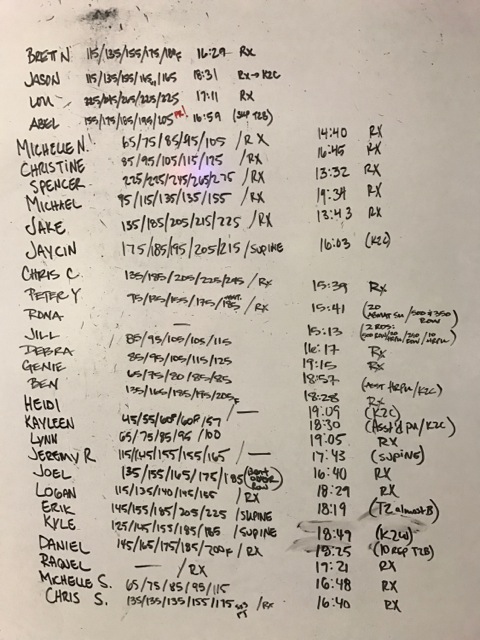 BRETT N. 115/135/155/175/184F 16:29 RX
JASON 115/135/155/165/165 18:31 RX→K2C
LOU 225/245/205/225/225 17:11 RX
ABEL 155/175/185/195/205 PR! 16:59 T2B)
MICHELLE N. 65/75/85/95/105 /RX 14:40 RX
CHRISTINE 85/95/105/115/125 /RX 16:45 RX
SPENCER 225/235/245/265/275 /RX 13:32 RX
MICHAEL 95/115/135/135/155 /RX 19:34 RX
JAKE 135/185/205/215/225 /RX 13:43 RX
JAYCIN 175/185/195/205/215 /SUPINE 16:03 (K2C)
CHRIS C. 135/185/205/225/245 /RX 15:39 RX
PETER Y. 95/135/155/175/185 /RX 15:41 (20
RONA — 15:13 (2 RDS:
JILL 85/95/105/105/115 16:17 RX
DEBRA 85/95/105/115/125 19:15 RX
GENIE 65/75/80/85/85 18:57 (ASST HRPU/K2C)
BEN 135/165/185/195/205F 18:28 RX
HEIDI /— 19:09 (K2C)
KAYLEEN 45/55/60F/60F/57 18:30 (Asst'd PU/K2C)
LYNN 65/75/85/95/100 19:05 RX
JEREMY R. 115/145/155/155/165 /— 17:43 (SUPINE)
JOEL 135/155/165/175/185 (BENT OVER ROW) 16:40 RX
LOGAN 115/135/140/145/155 /RX 18:29 RX
ERIK 145/155/185/205/225 /SUPINE 18:19 (T2 almost B)
KYLE 125/145/155/185/185 /SUPINE 18:49 (K2W)
DANIEL 145/165/175/185/200F /RX 18:25 (10 REP T2B)
RAQUEL — /RX 17:21 RX
MICHELLE S. 65/75/85/95/115 16:48 RX
CHRIS S. 135/135/135/155/175 /RX 16:40 RX